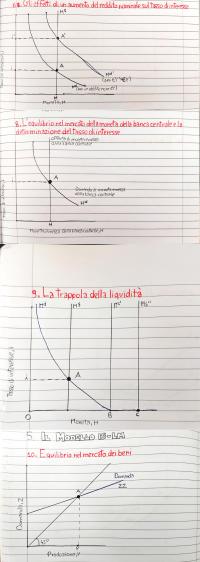 Gli effetti di un aumento del reddito nominale sul tasso di interesse
Mˢ
A'
A
Mᵈ'
Moneta, M
8. L'equilibrio nel mercato della moneta della banca centrale e la determinazione del tasso di interesse
Offerta di moneta emessa dalla banca centrale
A
Domanda di moneta emessa dalla banca centrale
Hᵈ
H
9. La trappola della liquidità
Mᵈ
Mˢ
Mˢ'
Mˢ''
Tasso di interesse, i
A
O
M
B
C
Moneta, M
5. IL MODELLO IS-LM
10. Equilibrio nel mercato dei beni
Domanda
ZZ
A
Domanda, Z
45°
Produzione, Y